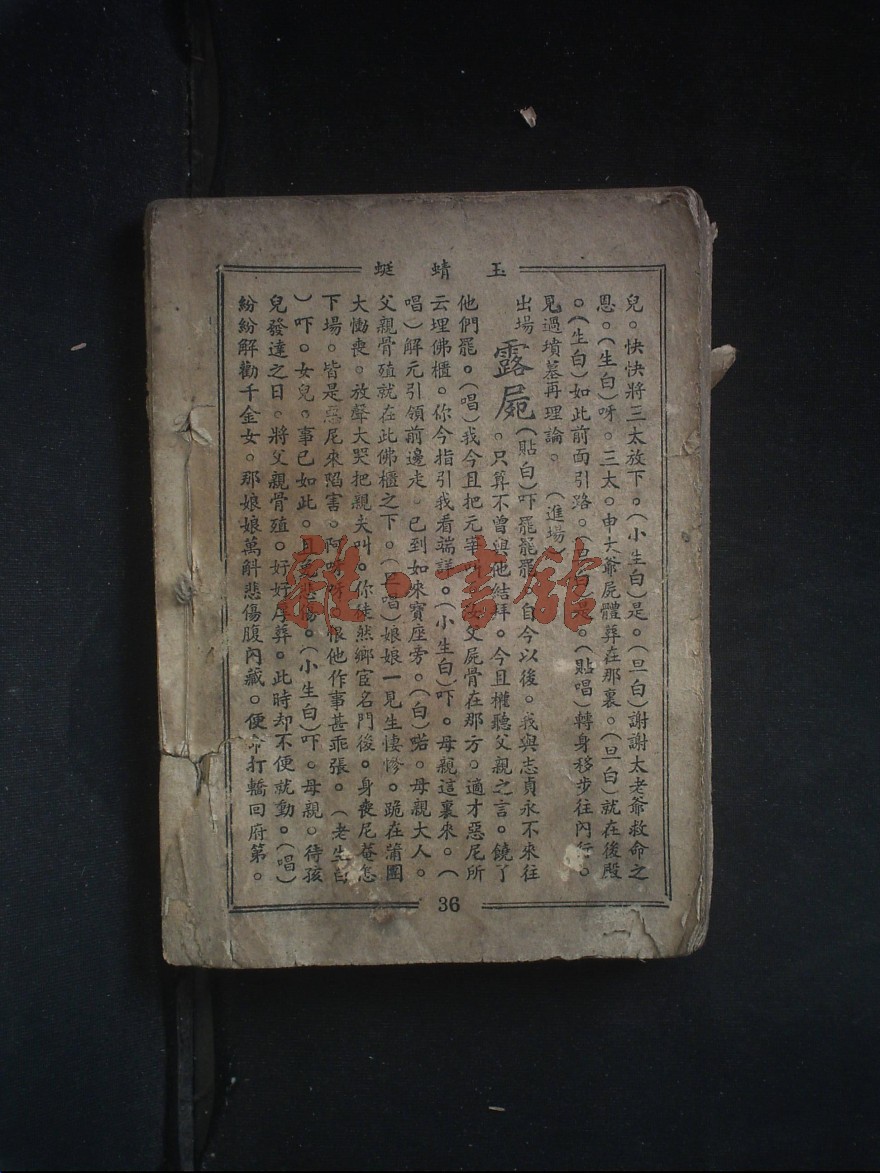 玉蜻蜓
兒。快快將三太放下。(小生白)是。(旦白)謝謝太老爺救命之
恩。(生白)呀。三太。申大爺屍體葬在那裏。(旦白)就在後殿
。(生白)如此前面引路。(旦白)是。(貼唱)轉身移步往內行。
見過墳墓再理論。(進場)
露屍
出場(貼白)吓罷罷罷。自今以後。我與志貞永不來往
。只算不曾與他結拜。今且權聽父親之言。饒了
他們罷。(唱)我今且把元宰叫。父屍骨在那方。適才惡尼所
云埋佛櫃。你今指引我看端詳。(小生白)吓。母親這裏來。(
唱)解元引領前邊走。已到如來寶座旁。(白)喏。母親大人。
父親骨殖就在此佛櫃之下。(旦唱)娘娘一見生悽慘。跪在蒲團
大慟喪。放聲大哭把親夫叫。你徒然鄉宦名門後。身喪尼菴怎
下場。皆是惡尼來陷害。阿呀呀。恨他作事甚乖張。(老生白
)吓。女兒。事已如此。且免悲傷。(小生白)吓。母親。待孩
兒發達之日。將父親骨殖。好好斥葬。此時却不便就動。(唱)
紛紛解勸千金女。那娘娘萬斛悲傷腹內藏。便命打轎回府第。
36
雜·書館